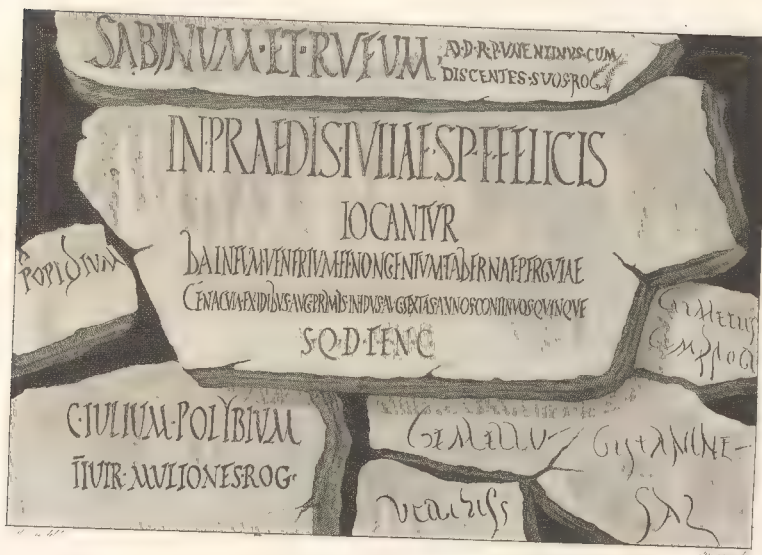 SABINUM·ET·RVFUM,
A)·D·R·P·VALENTINVS·CUM
DISCENTES·SUOS·ROG
IN·PRAEDIS·IVLIAE·SP·F·FELICIS
LOCANTVR
BALNEUM·VENERIVM·ET·NONGENTUM·TABERNAE·PERGVLAE
CENACVLA·EX·IDIBUS·AVG·PRIMIS·IN·IDUS·AVG·SEXTAS·ANNOS·CONTINVOS·QVINQVE
S·Q·D·L·E·N·C
POPIDIUM
C·IULIUM·POLYBIVM
IIVIR·MULIONES·ROG·
GEMELLU
SAL